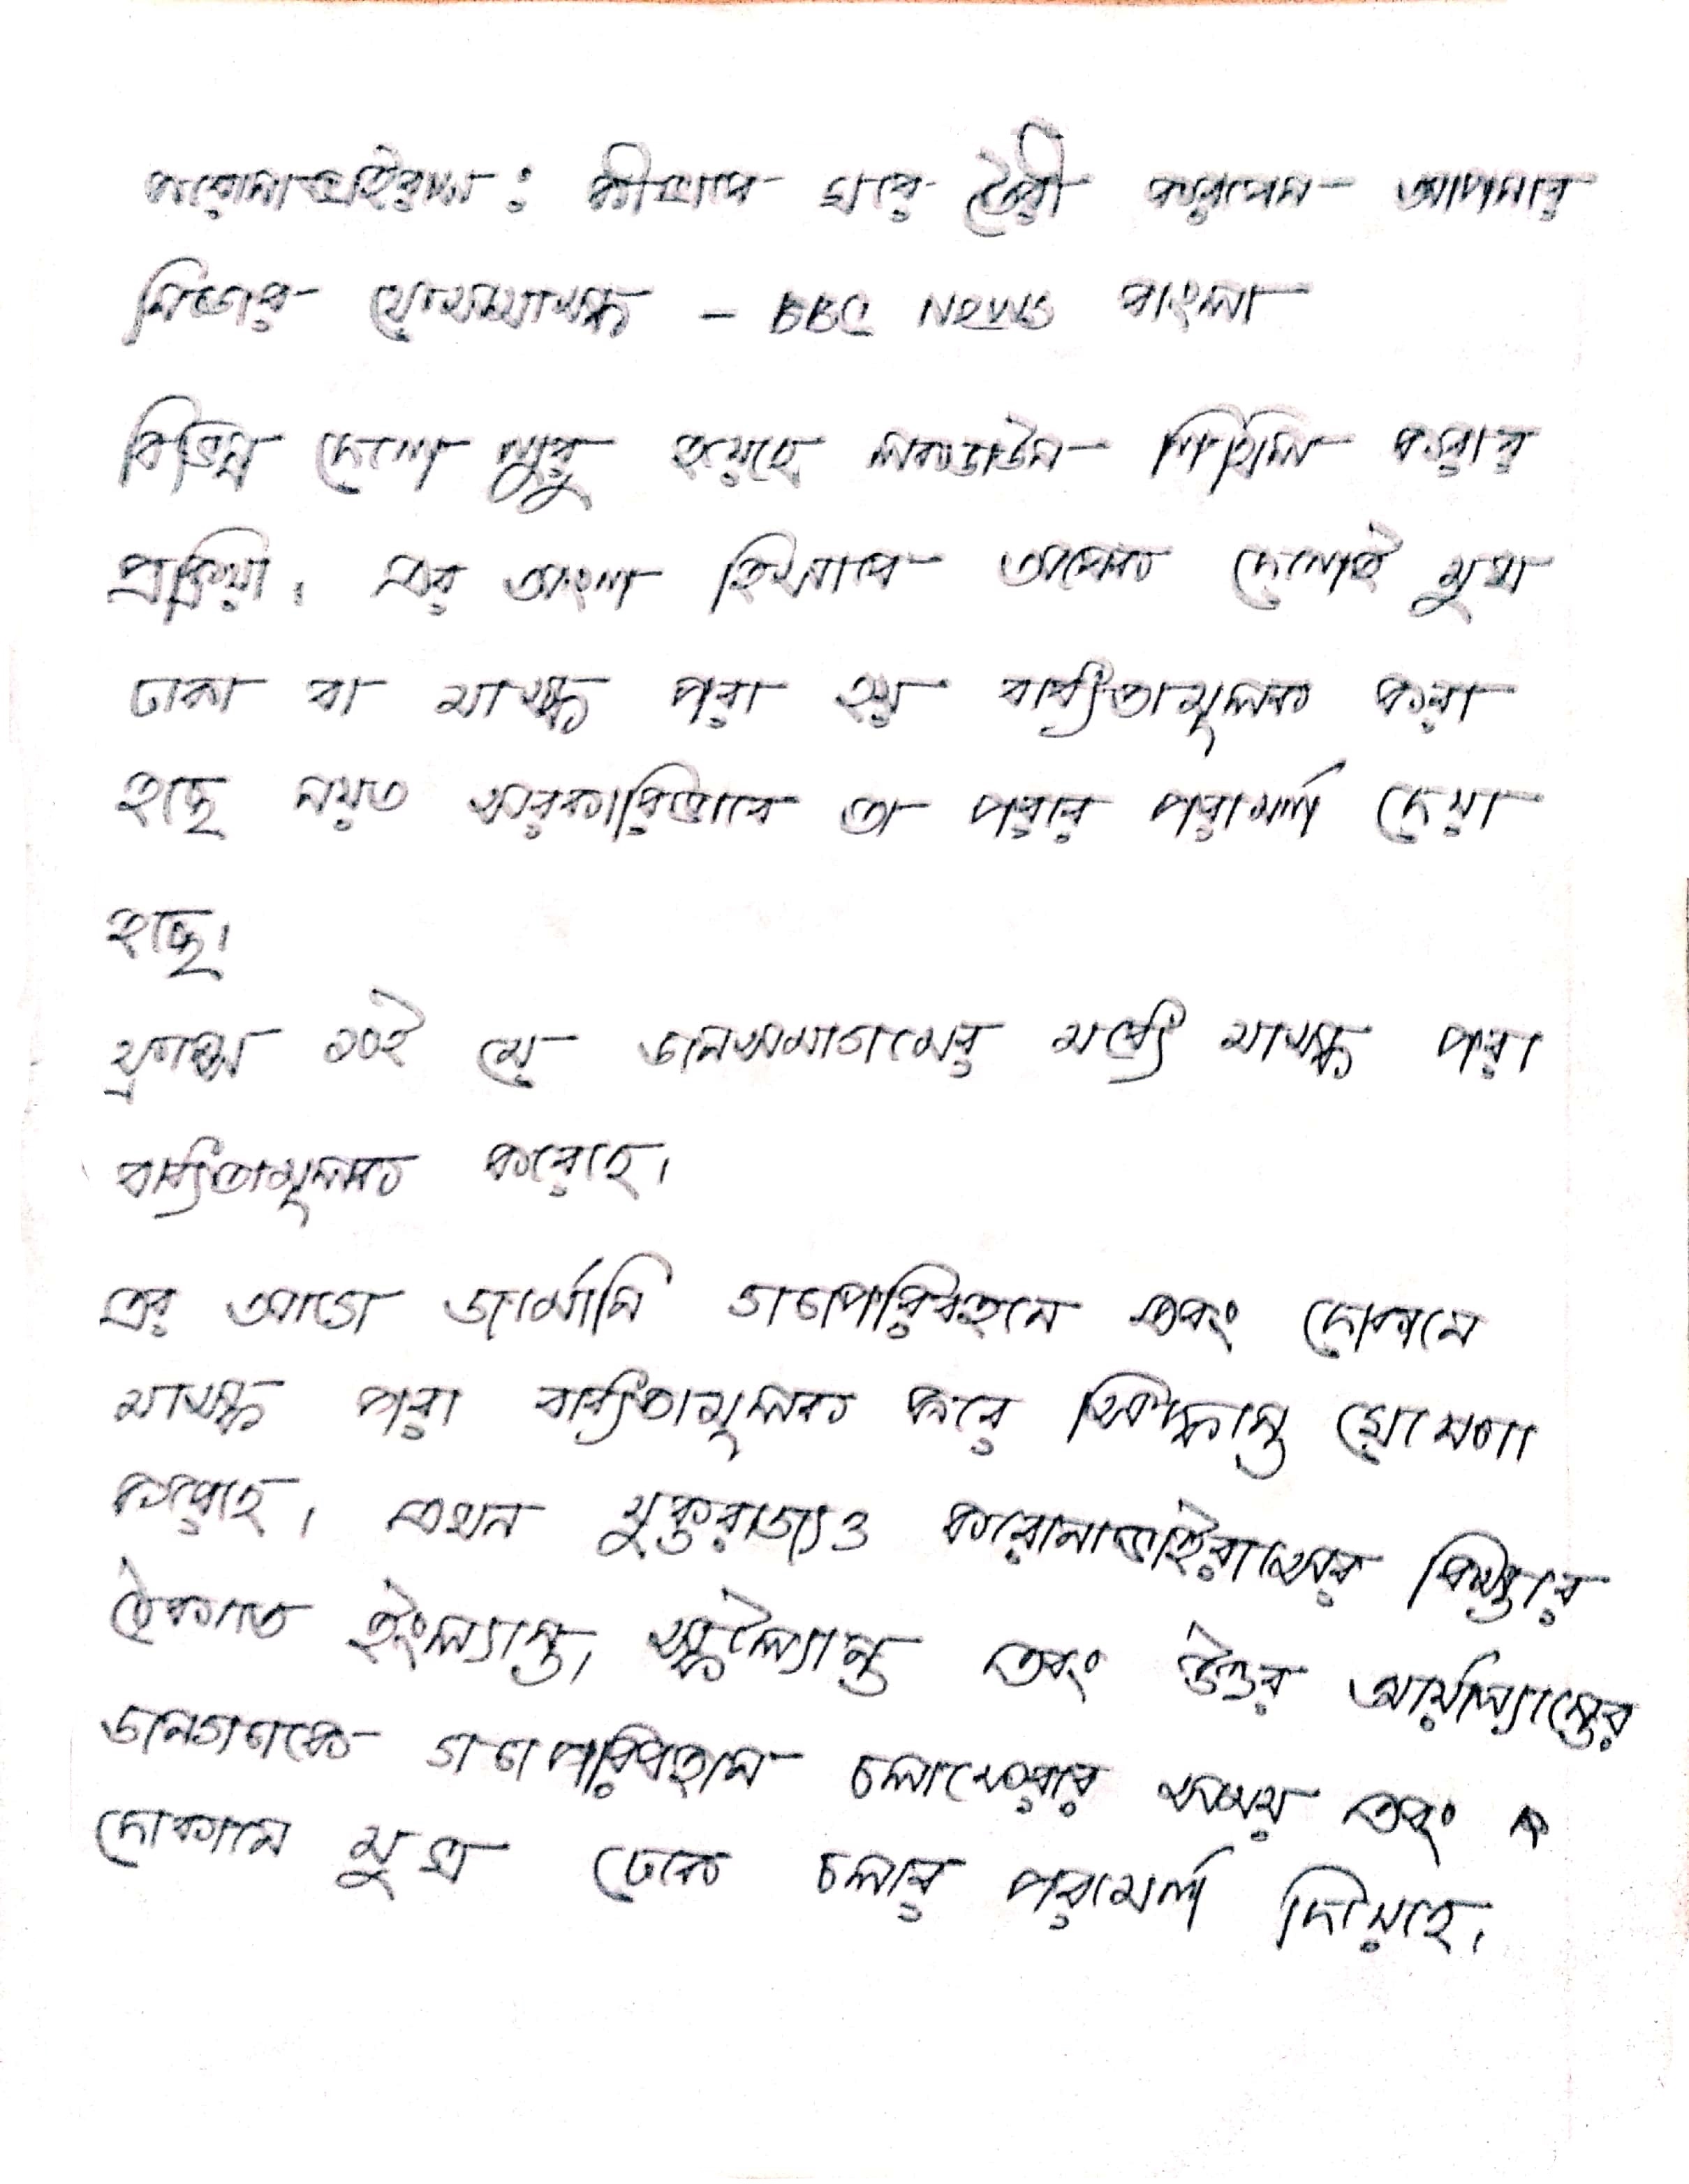 করোনাভাইরাস : কীভাবে ঘরে তৈরী করবেন আপনার
নিজের ফেসমাস্ক - BBC News বাংলা
বিভিন্ন দেশে শুরু হয়েছে লকডাউন শিথিল করার
প্রক্রিয়া। এর অংশ হিসাবে অনেক দেশেই মুখ
ঢাকা বা মাস্ক পরা হয় বাধ্যতামূলক করা
হচ্ছে নয়ত সরকারিভাবে তা পরার পরামর্শ দেয়া
হচ্ছে।
ফ্রান্স ১০ই মে জনসমাগমের মধ্যে মাস্ক পরা
বাধ্যতামূলক করেছে।
এর আগে জার্মানি গণপরিবহনে এবং দোকানে
মাস্ক পরা বাধ্যতামূলক করে সিদ্ধান্ত ঘোষণা
করেছে। এখন যুক্তরাজ্যও করোনাভাইরাসের বিস্তার
ঠেকাতে ইংল্যান্ড, স্কটল্যান্ড এবং উত্তর আয়ার্ল্যান্ডের
জনগণকে গণপরিবহনে চলাফেরার সময় এবং
দোকানে মুখ ঢেকে চলার পরামর্শ দিয়েছে।